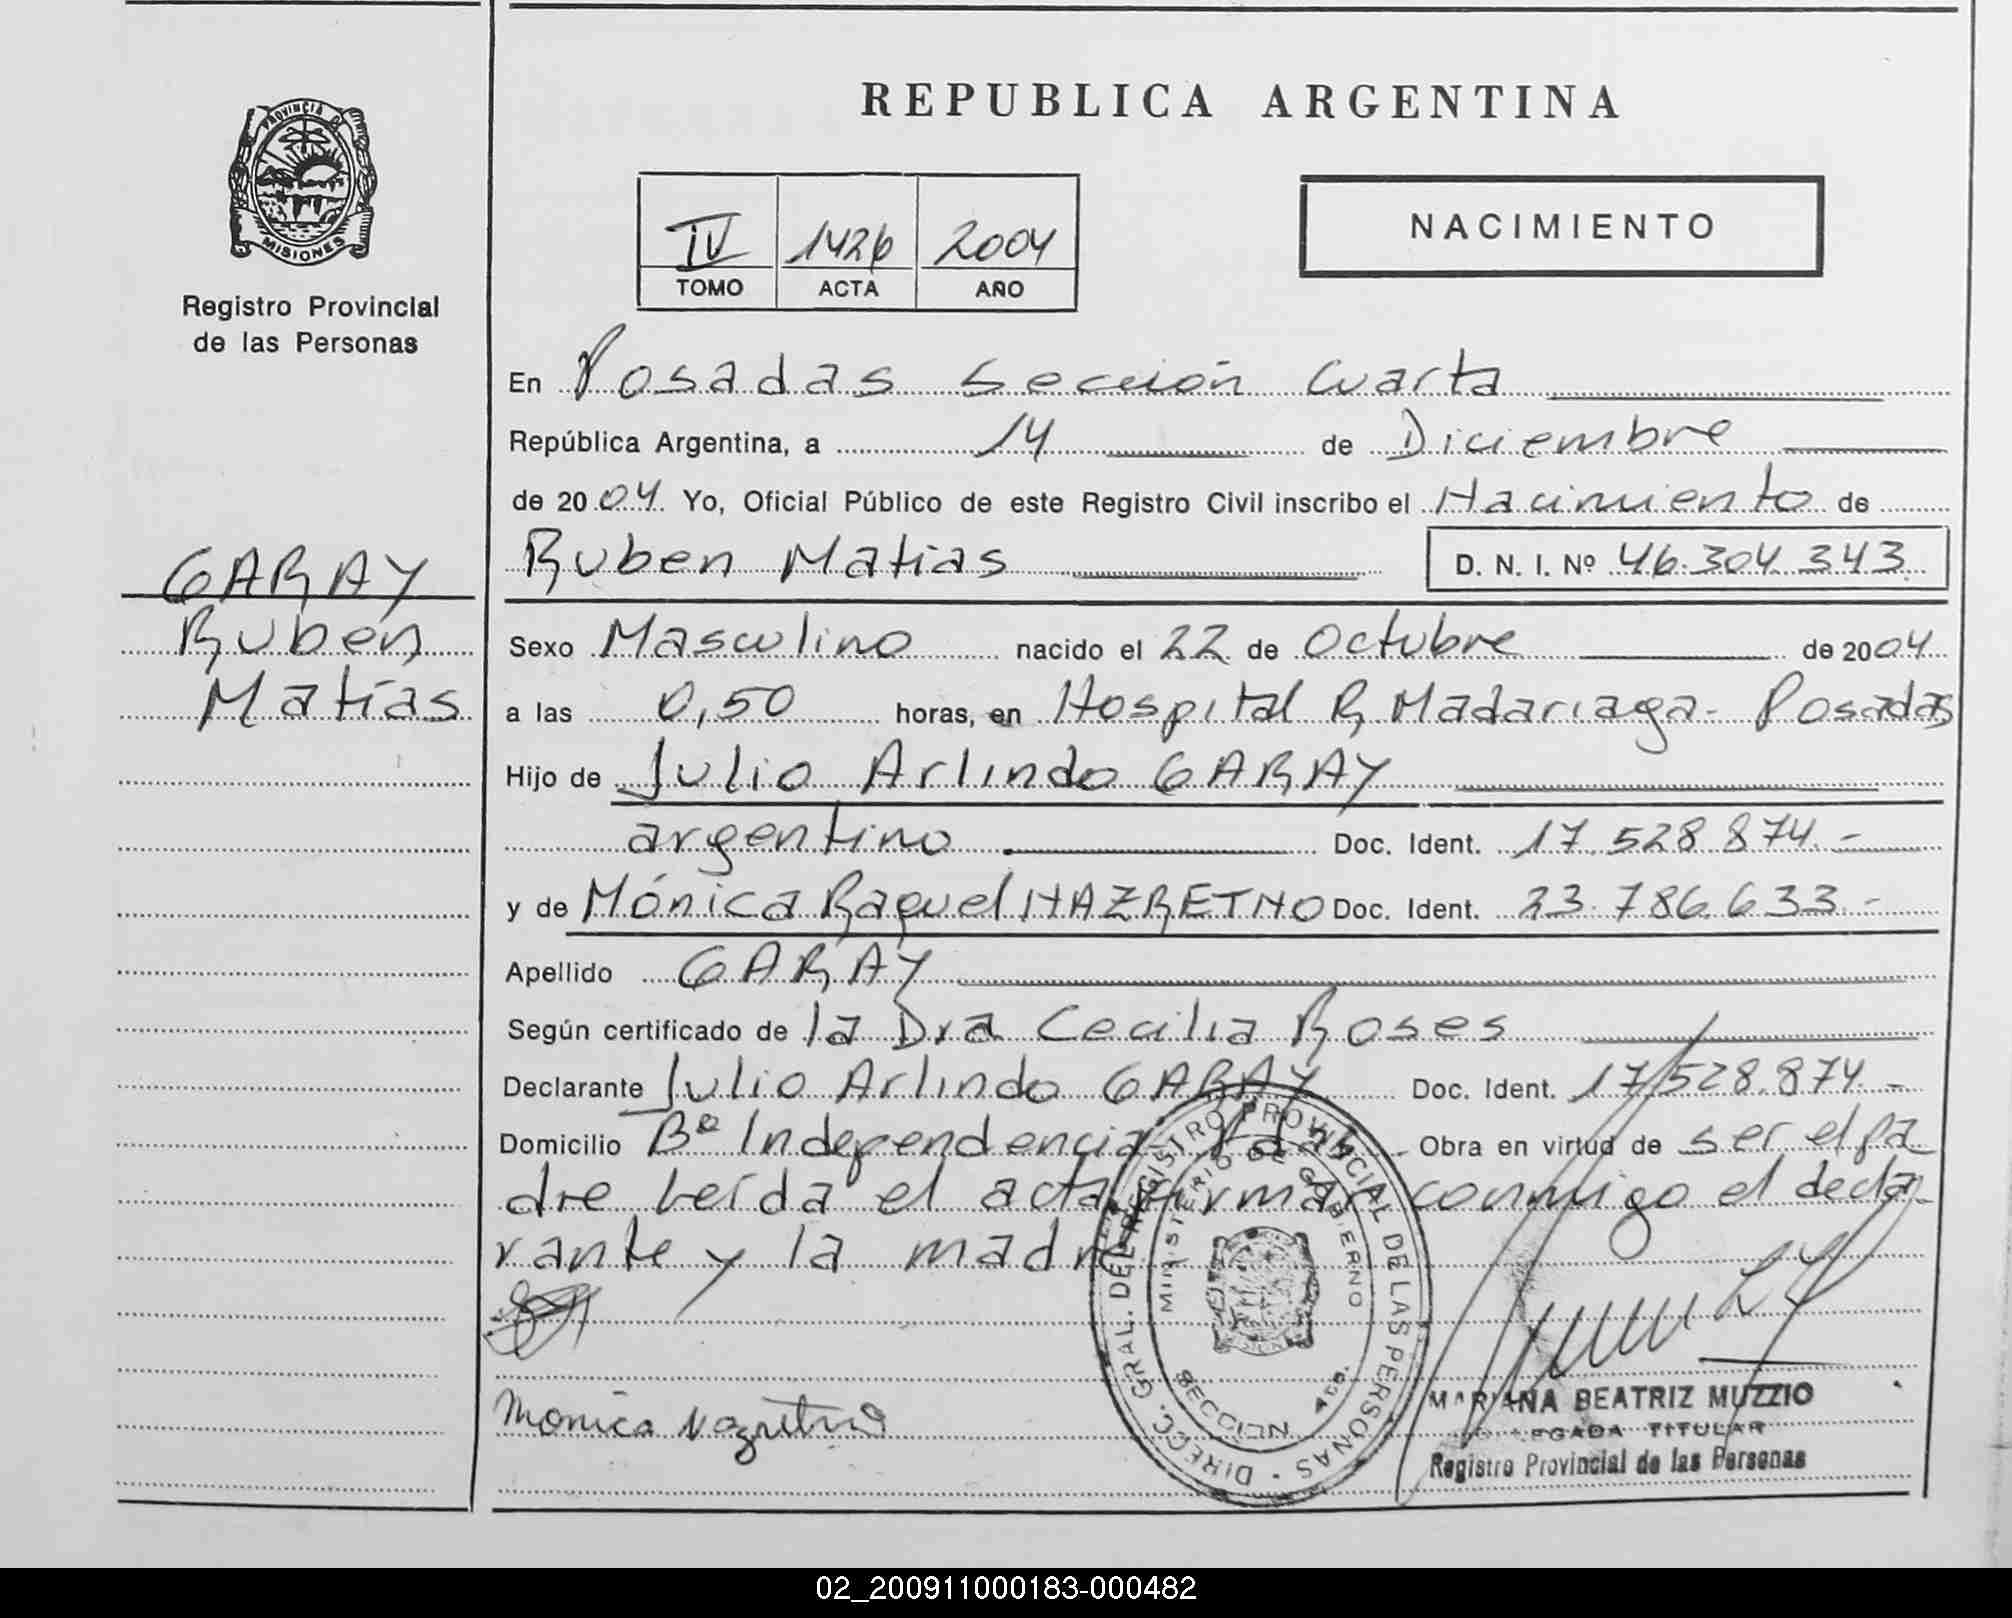 REPUBLICA ARGENTINA
PROVINCIA DE
MISIONES
Registro Provincial
de las Personas
IV 1426 2004
TOMO ACTA AÑO
NACIMIENTO
En Posadas Sección Cuarta
República Argentina, a 14 de Diciembre
de 2004 Yo, Oficial Público de este Registro Civil inscribo el Nacimiento de
Ruben Matias D. N. I. Nº 46.304.343
GARAY
Ruben
Matías
Sexo Masculino nacido el 22 de Octubre de 2004
a las 0,50 horas, en Hospital R. Madariaga - Posadas
Hijo de Julio Arlindo GARAY
argentino Doc. Ident. 17.528.874.-
y de Mónica Raquel NAZRETNO Doc. Ident. 23.786.633.-
Apellido GARAY
Según certificado de la Dra Cecilia Roses
Declarante Julio Arlindo GARAY Doc. Ident. 17.528.874.-
Domicilio Bº Independencia Obra en virtud de ser el pa
dre leída el acta firman conmigo el decla
rante y la madre
Monica
DIRECC. GRAL. DEL REGISTRO PROVINCIAL DE LAS PERSONAS
MINISTERIO DE GOBIERNO
SECCION 4ta.
MARIANA BEATRIZ MUZZIO
DELEGADA TITULAR
Registro Provincial de las Personas
02_200911000183-000482